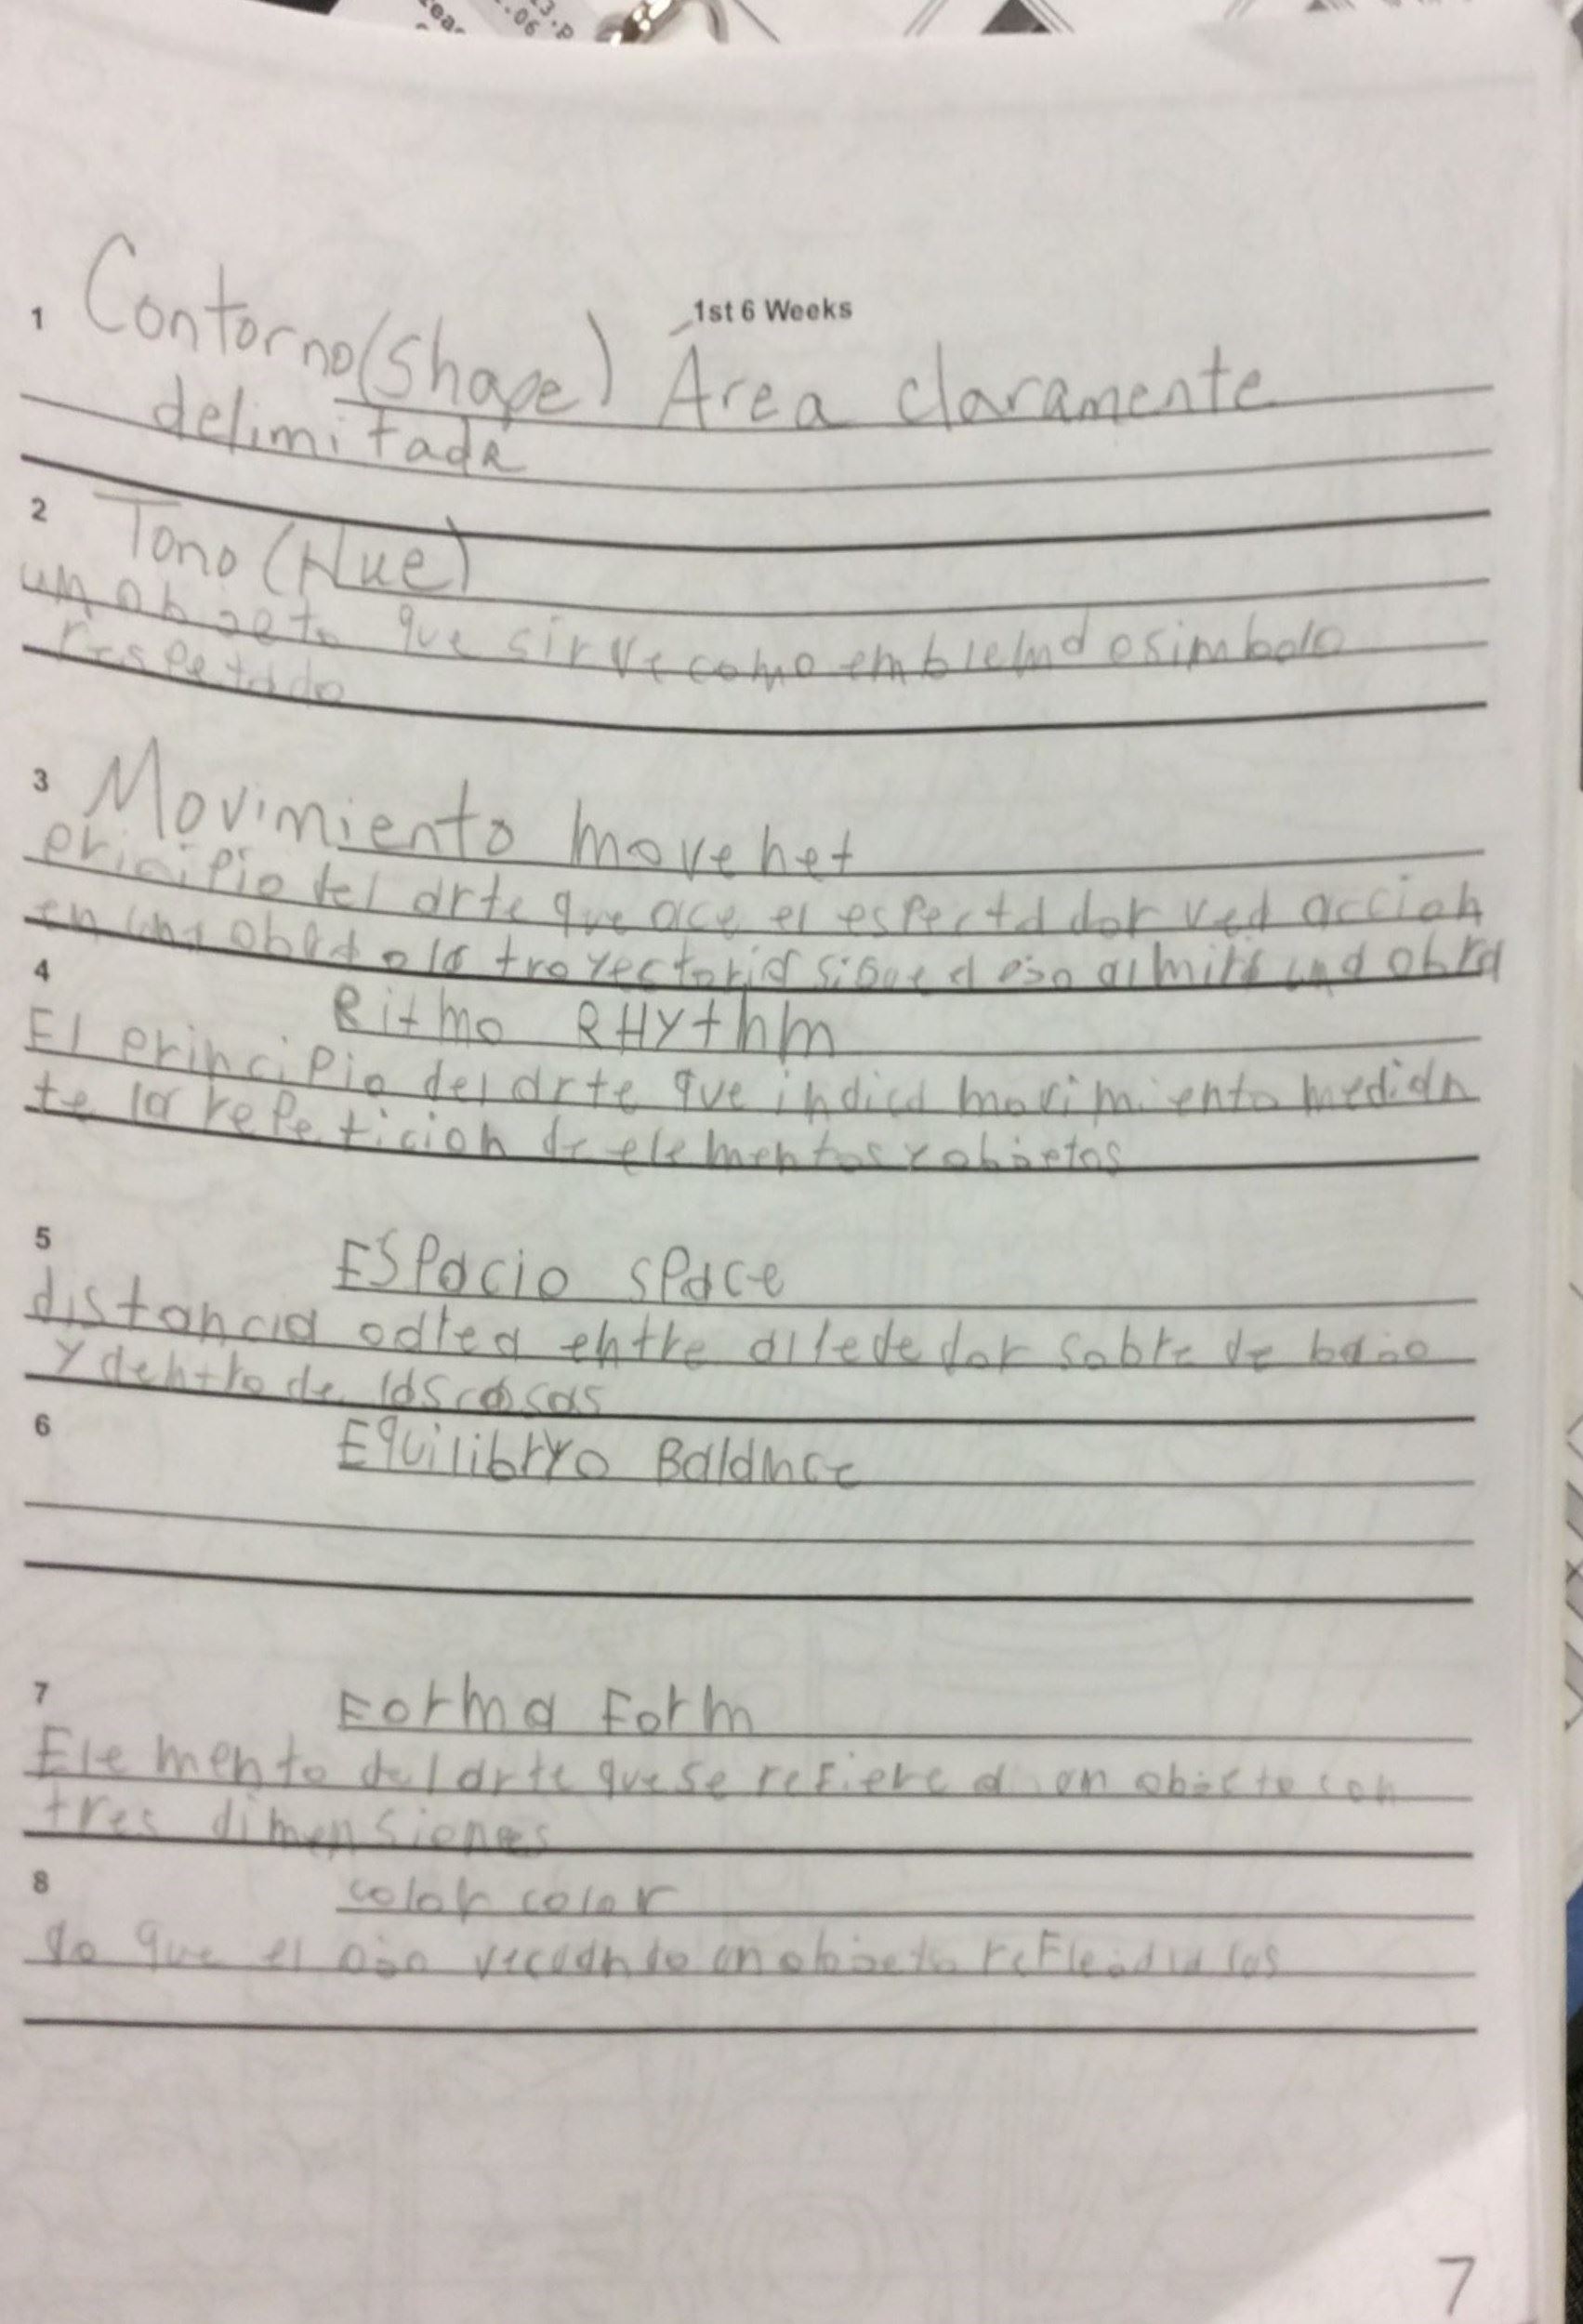 1st 6 Weeks
1 Contorno (Shape) Área claramente
delimitada
2 Tono (Hue)
un objeto que sirve como emblema o simbolo
respetado
3 Movimiento movehet
pricipio del arte que ace el espectador vea accion
en una obra o la trayectoria sigue el ojo al mirar una obra
4 Ritmo RHythm
El principio del arte que indica movimiento median
te la repeticion de elementos y objetos
5 ESPacio sPace
distancia o alrea entre alrededor sobre de bajo
y dentro de las cosas
6 Equilibryo Balance
7 Forma Form
Elemento del arte que se refiere a un objeto con
tres dimensiones
8 color color
lo que el ojo ve cuando un objeto refleja la los
7